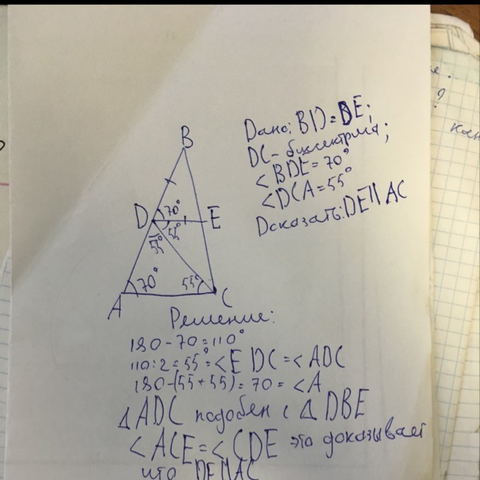 Дано: BD=DE;
DC-биссектриса;
<BDE=70°
<DCA=55°
Доказать: DE||AC
B
D
70°
E
55°
55°
70°
55°
A
C
Решение:
180-70=110°
110:2=55°=<EDC=<ADC
180-(55+55)=70=<A
△ADC подобен с △DBE
<ACE=<CDE это доказывает
что DE||AC